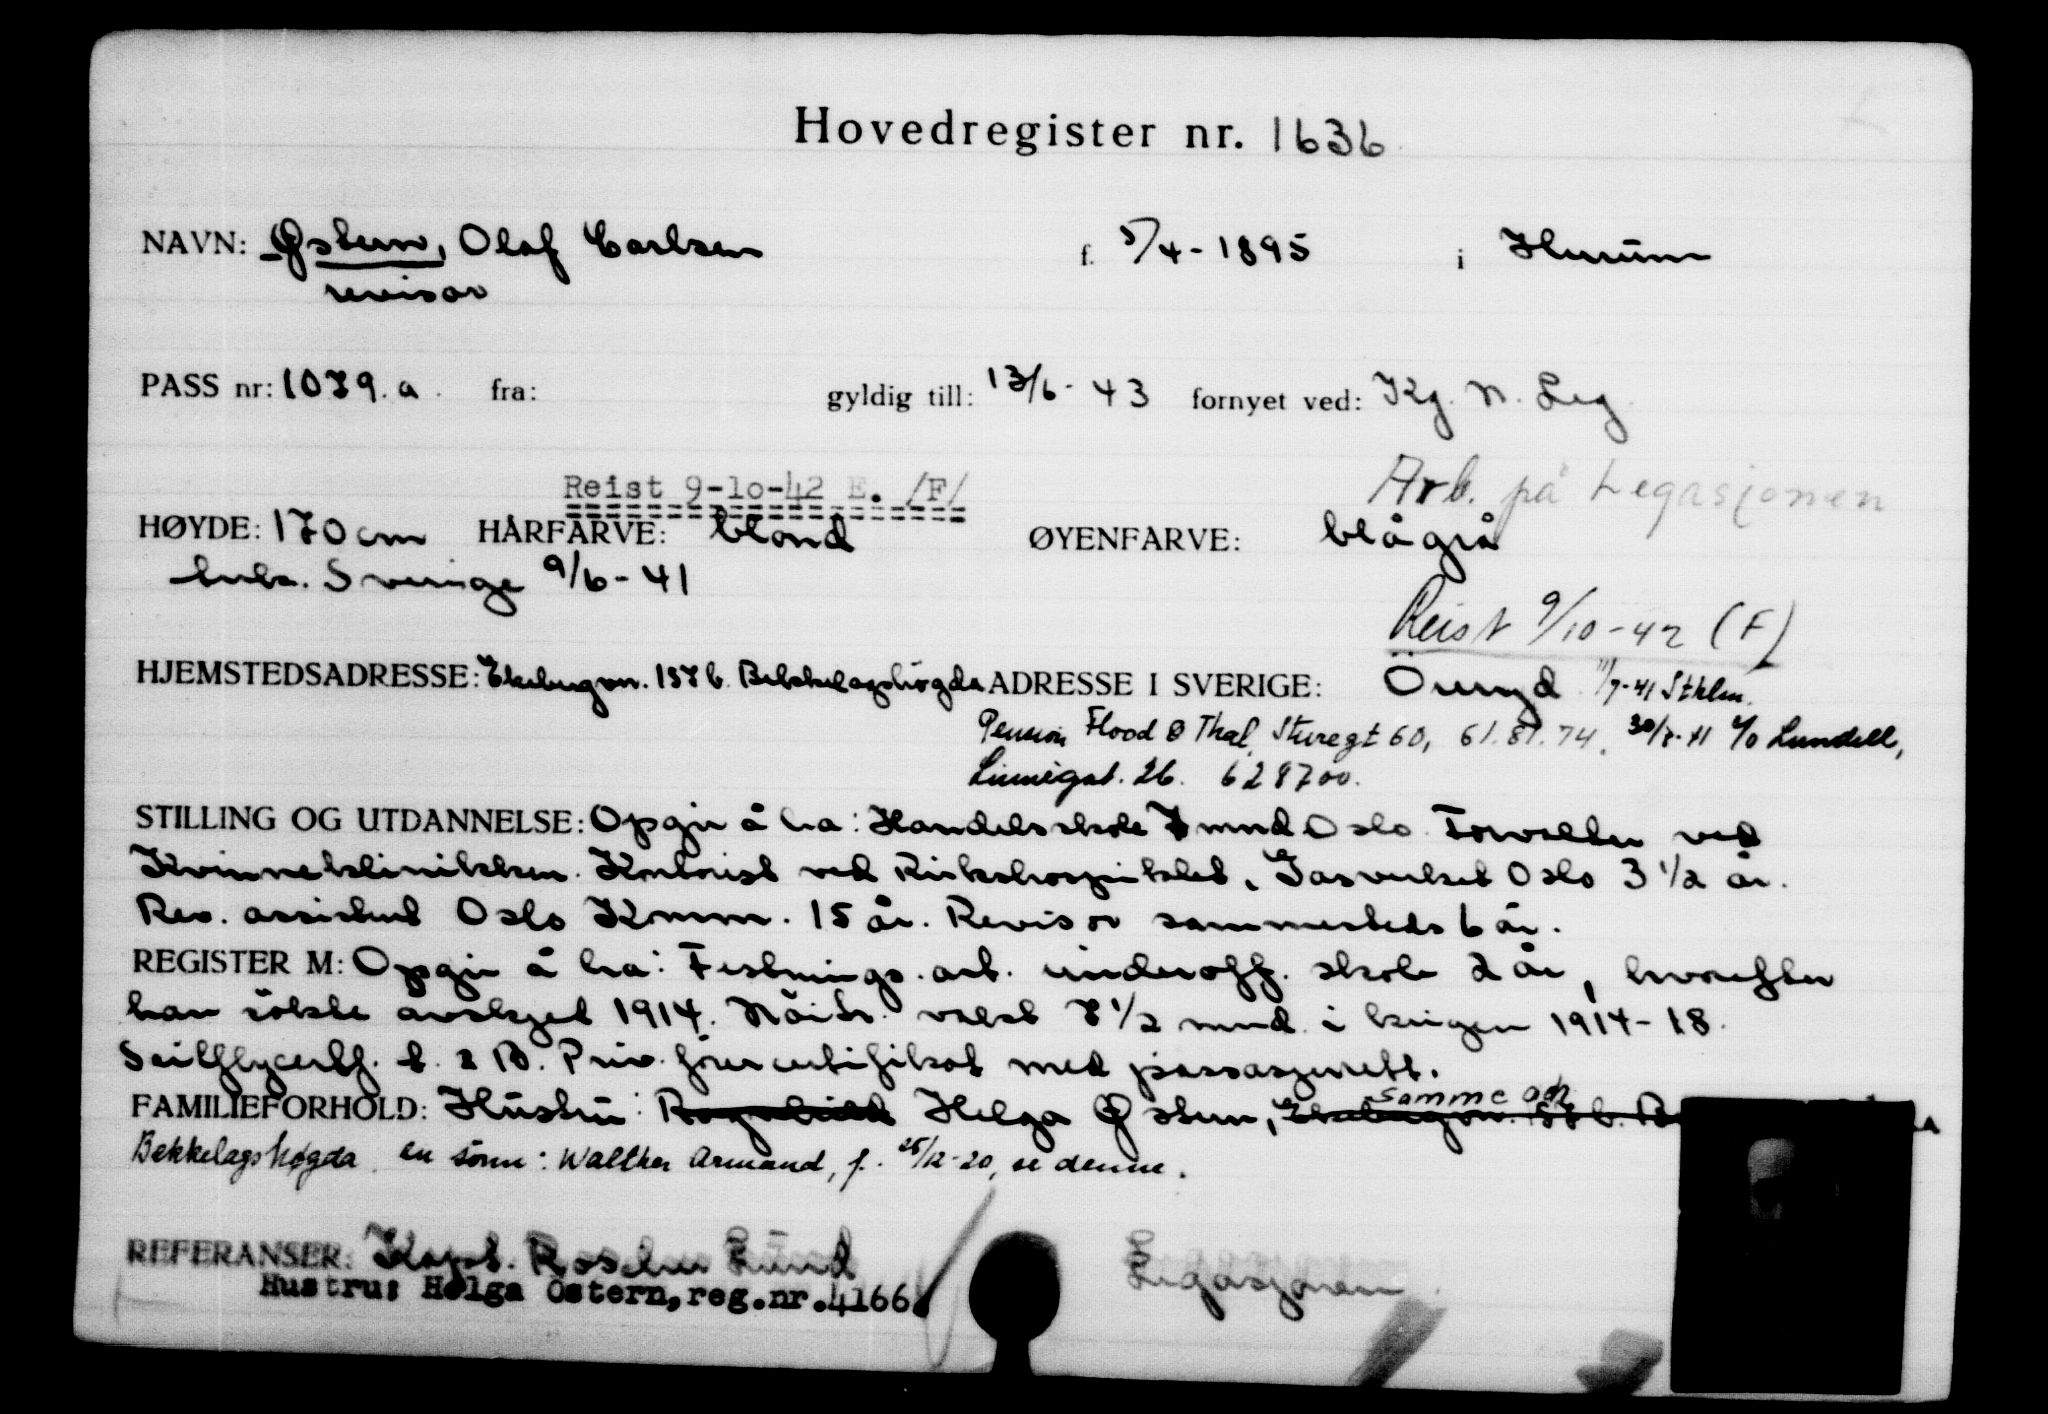 Hovedregister nr. 1636
NAVN: Østern, Olaf Carlsen f. 5/4-1895 i Hurum
revisor
PASS nr: 1079.a. fra: gyldig till: 13/6-43 fornyet ved: Kg. N. Leg.
Reist 9-10-42 E. /F/ Arb. på Legasjonen
HØYDE: 170 cm HÅRFARVE: blond ØYENFARVE: blågrå
Sverige 9/6-41
Reist 9/10-42 (F)
HJEMSTEDSADRESSE: Ekebergvn. 137 b. Bekkelagshögda ADRESSE I SVERIGE: Öreryd 11/7-41 Sthlm.
Pension Flood & Thal, Sturegt 60, 61.81.74, 30/7-41 c/o Lundell,
Linnégat. 26. 628700.
STILLING OG UTDANNELSE: Opgir å ha: Handelsskole 7 mnd Oslo. Forvalter ved
Kvinneklinikken. Kontorist ved Rikshospitalet, Gasverket Oslo 3 1/2 år.
Rev. assistent Oslo Komm. 15 år. Revisor sammesteds 6 år.
REGISTER M: Opgir å ha: Festnings. art. underoff. skole 2 år, hvorefter
han sökte avskjed 1914. Nöitr. vakt 7 1/2 mnd. i krigen 1914-18.
Seilflycertf. t. 2 B. Priv. förercertifikat med passasjerrett.
FAMILIEFORHOLD: Hustru: Ragnhild Helga Østern, samme adr. Ekebergvn. 137 b.
Bekkelagshøgda. en sönn: Walther Armand, f. 25/12-20, se denne.
REFERANSER: Kapt. Roscher Lund Legasjonen
Hustru: Helga Östern, reg.nr. 4166